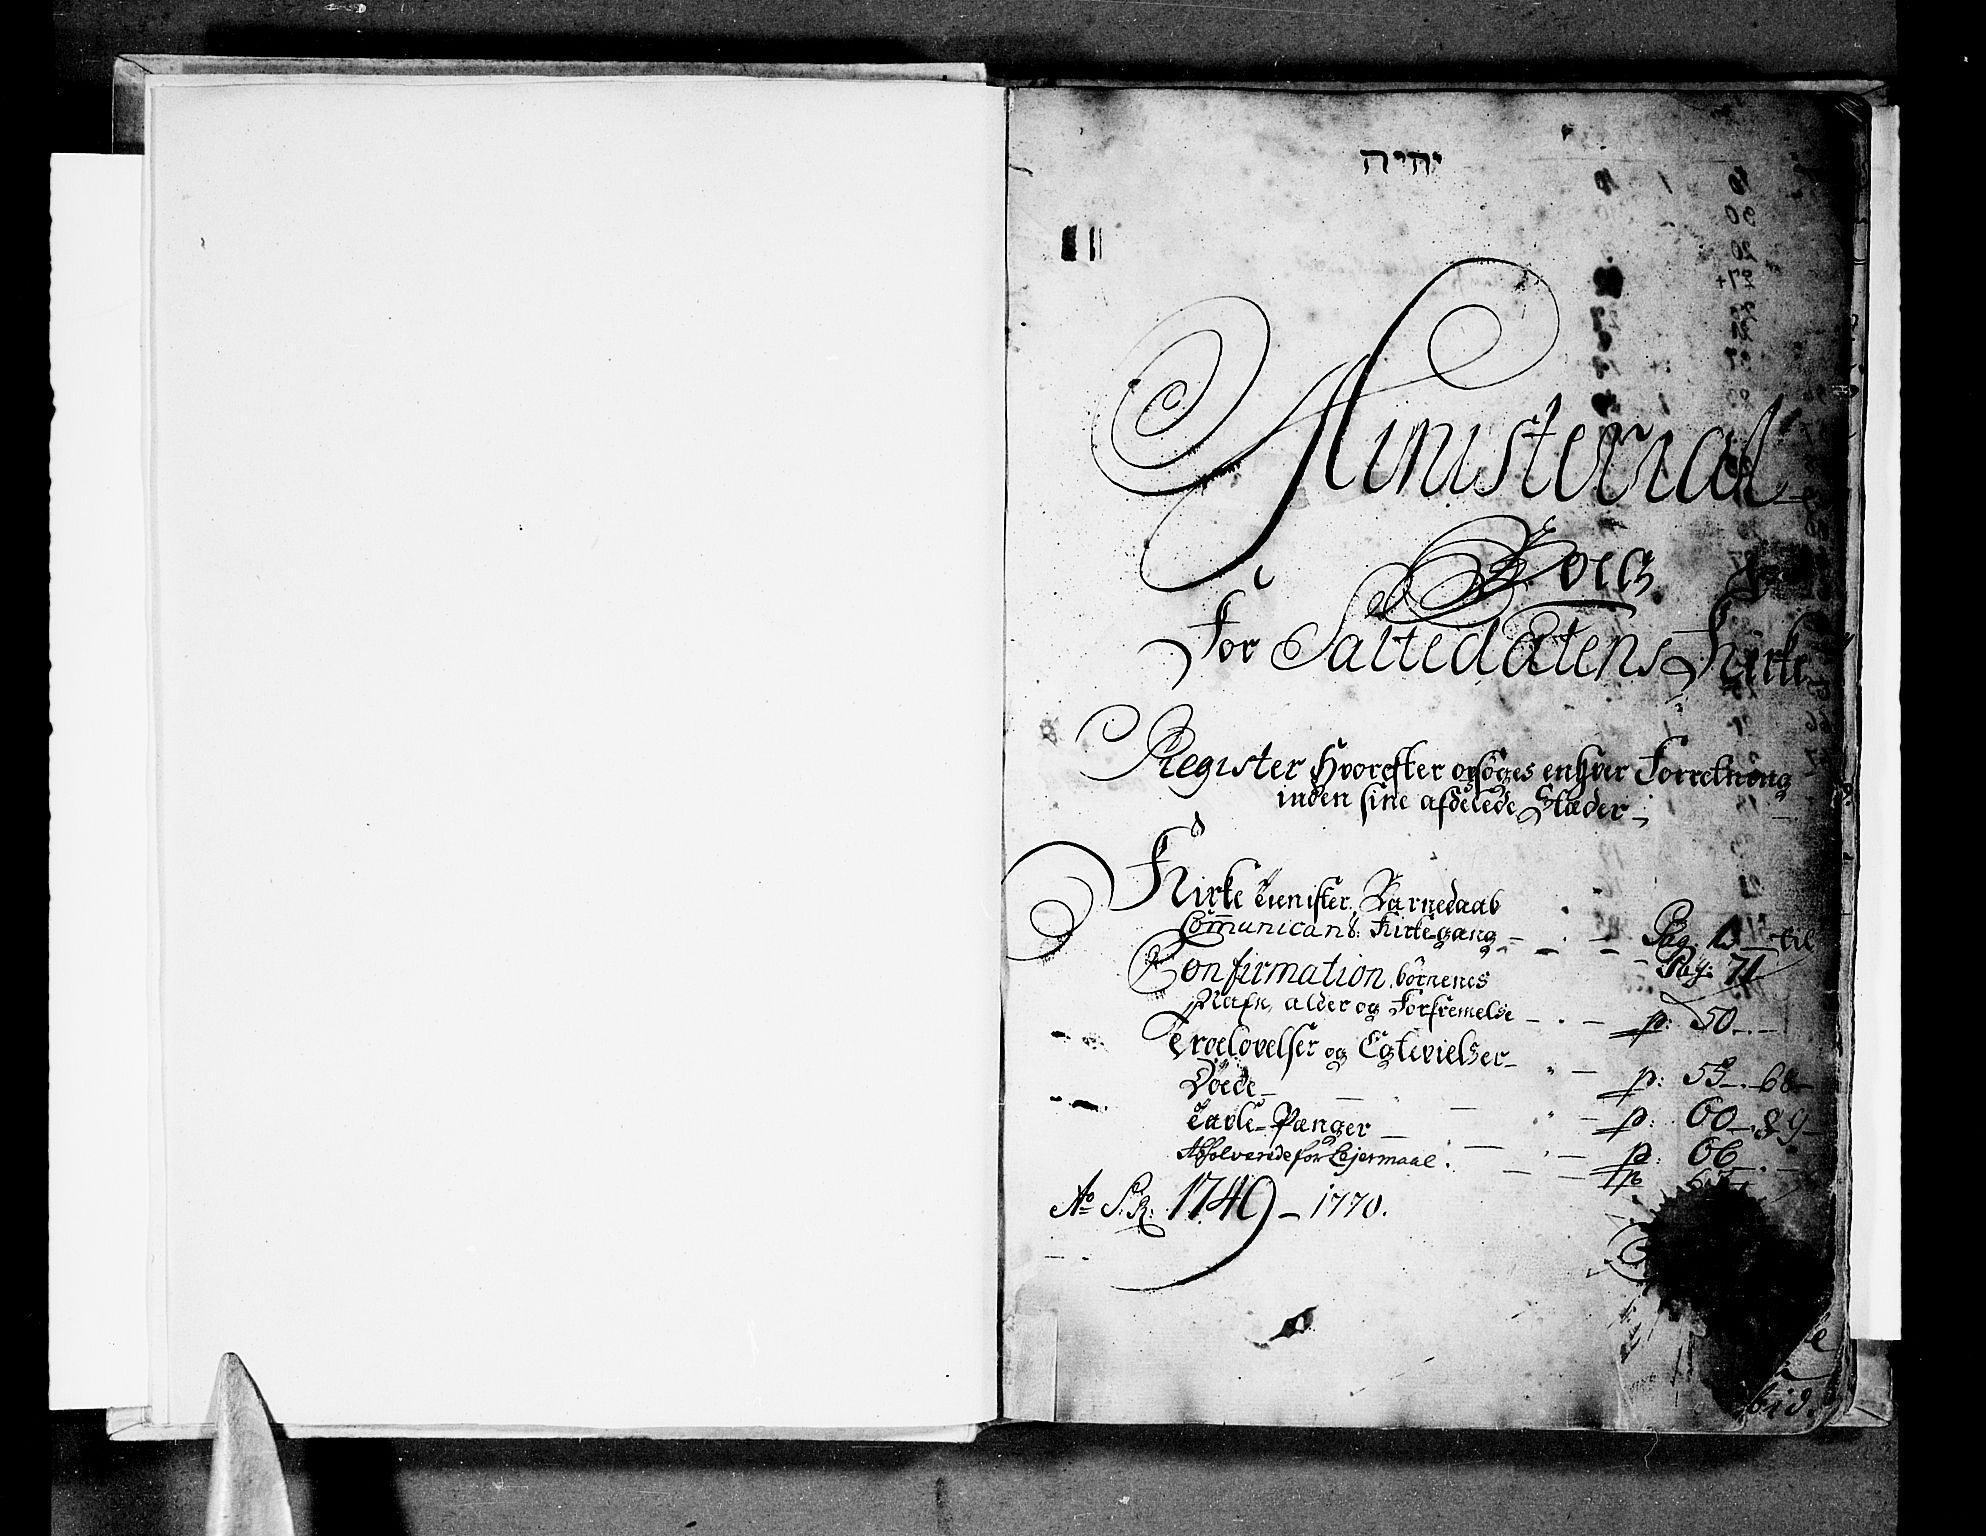 יהיה
Ministerial
Boeg
For Saltedalens Kirke
Register Hvorefter opsøges enhver Forretning
inden sine afdelede Stæder
Kirke Tienister, Barnedaab
Communicant: Kirkegang Pag: til
Confirmation børnenes Pag: 71
Nafn, alder og Forfremelse p: 50
Troelovelser og Egtevielser p: 55
Døede p: 60 89
Tavle-Penger p: 66
Absolverede for Lejermaal p
Ao S: R: 1749 - 1770.
ibid.